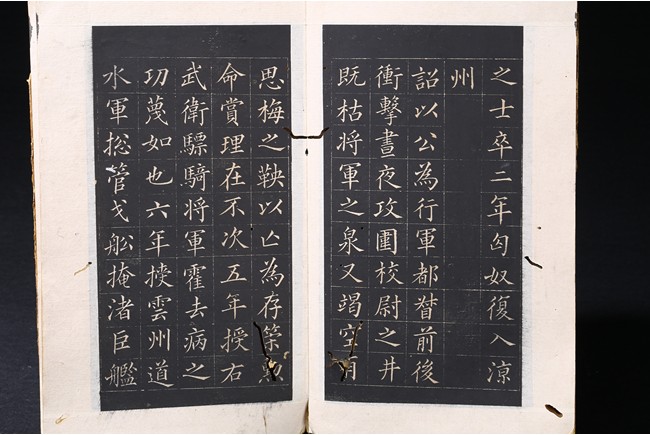 之士卒二年匈奴復入涼
州
詔以公為行軍都督前後
衝擊晝夜攻圍校尉之井
既枯將軍之泉又竭空有
思梅之鞅以亾為存策勲
命賞理在不次五年授右
武衛驃騎將軍霍去病之
功蔑如也六年挾雲州道
水軍捴管戈舩掩渚巨艦